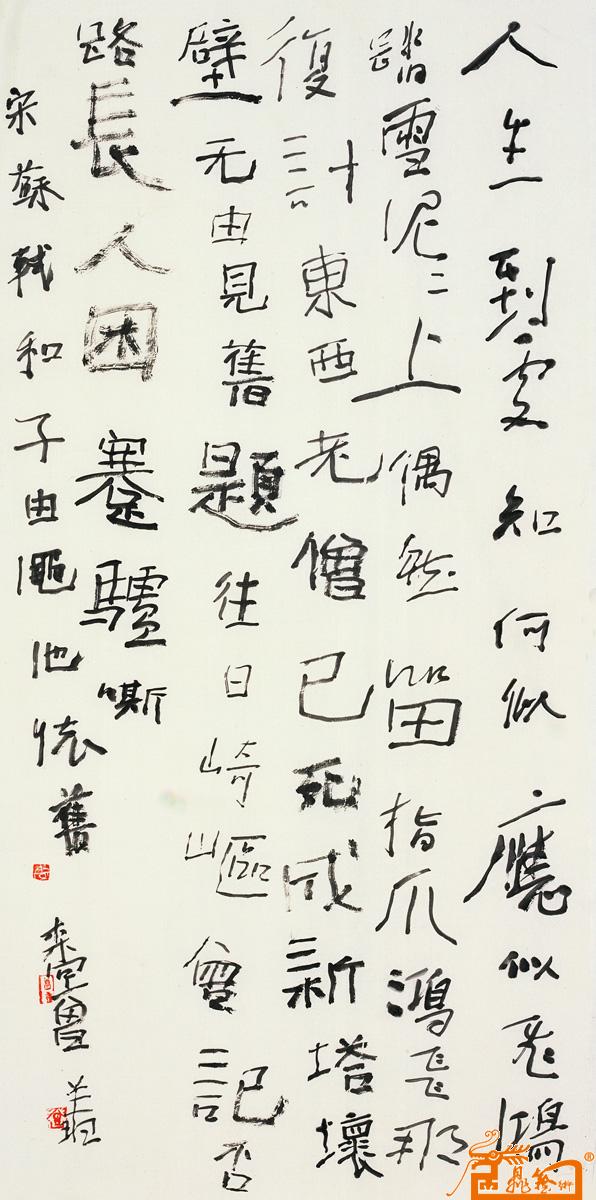 人生到處知何似應似飛鴻
踏雪泥〻上偶然留指爪鴻飛那
復計東西老僧已死成新塔壞
壁无由見舊題往日崎嶇曾記否
路長人困蹇驢嘶
宋蘇軾和子由澠池懷舊